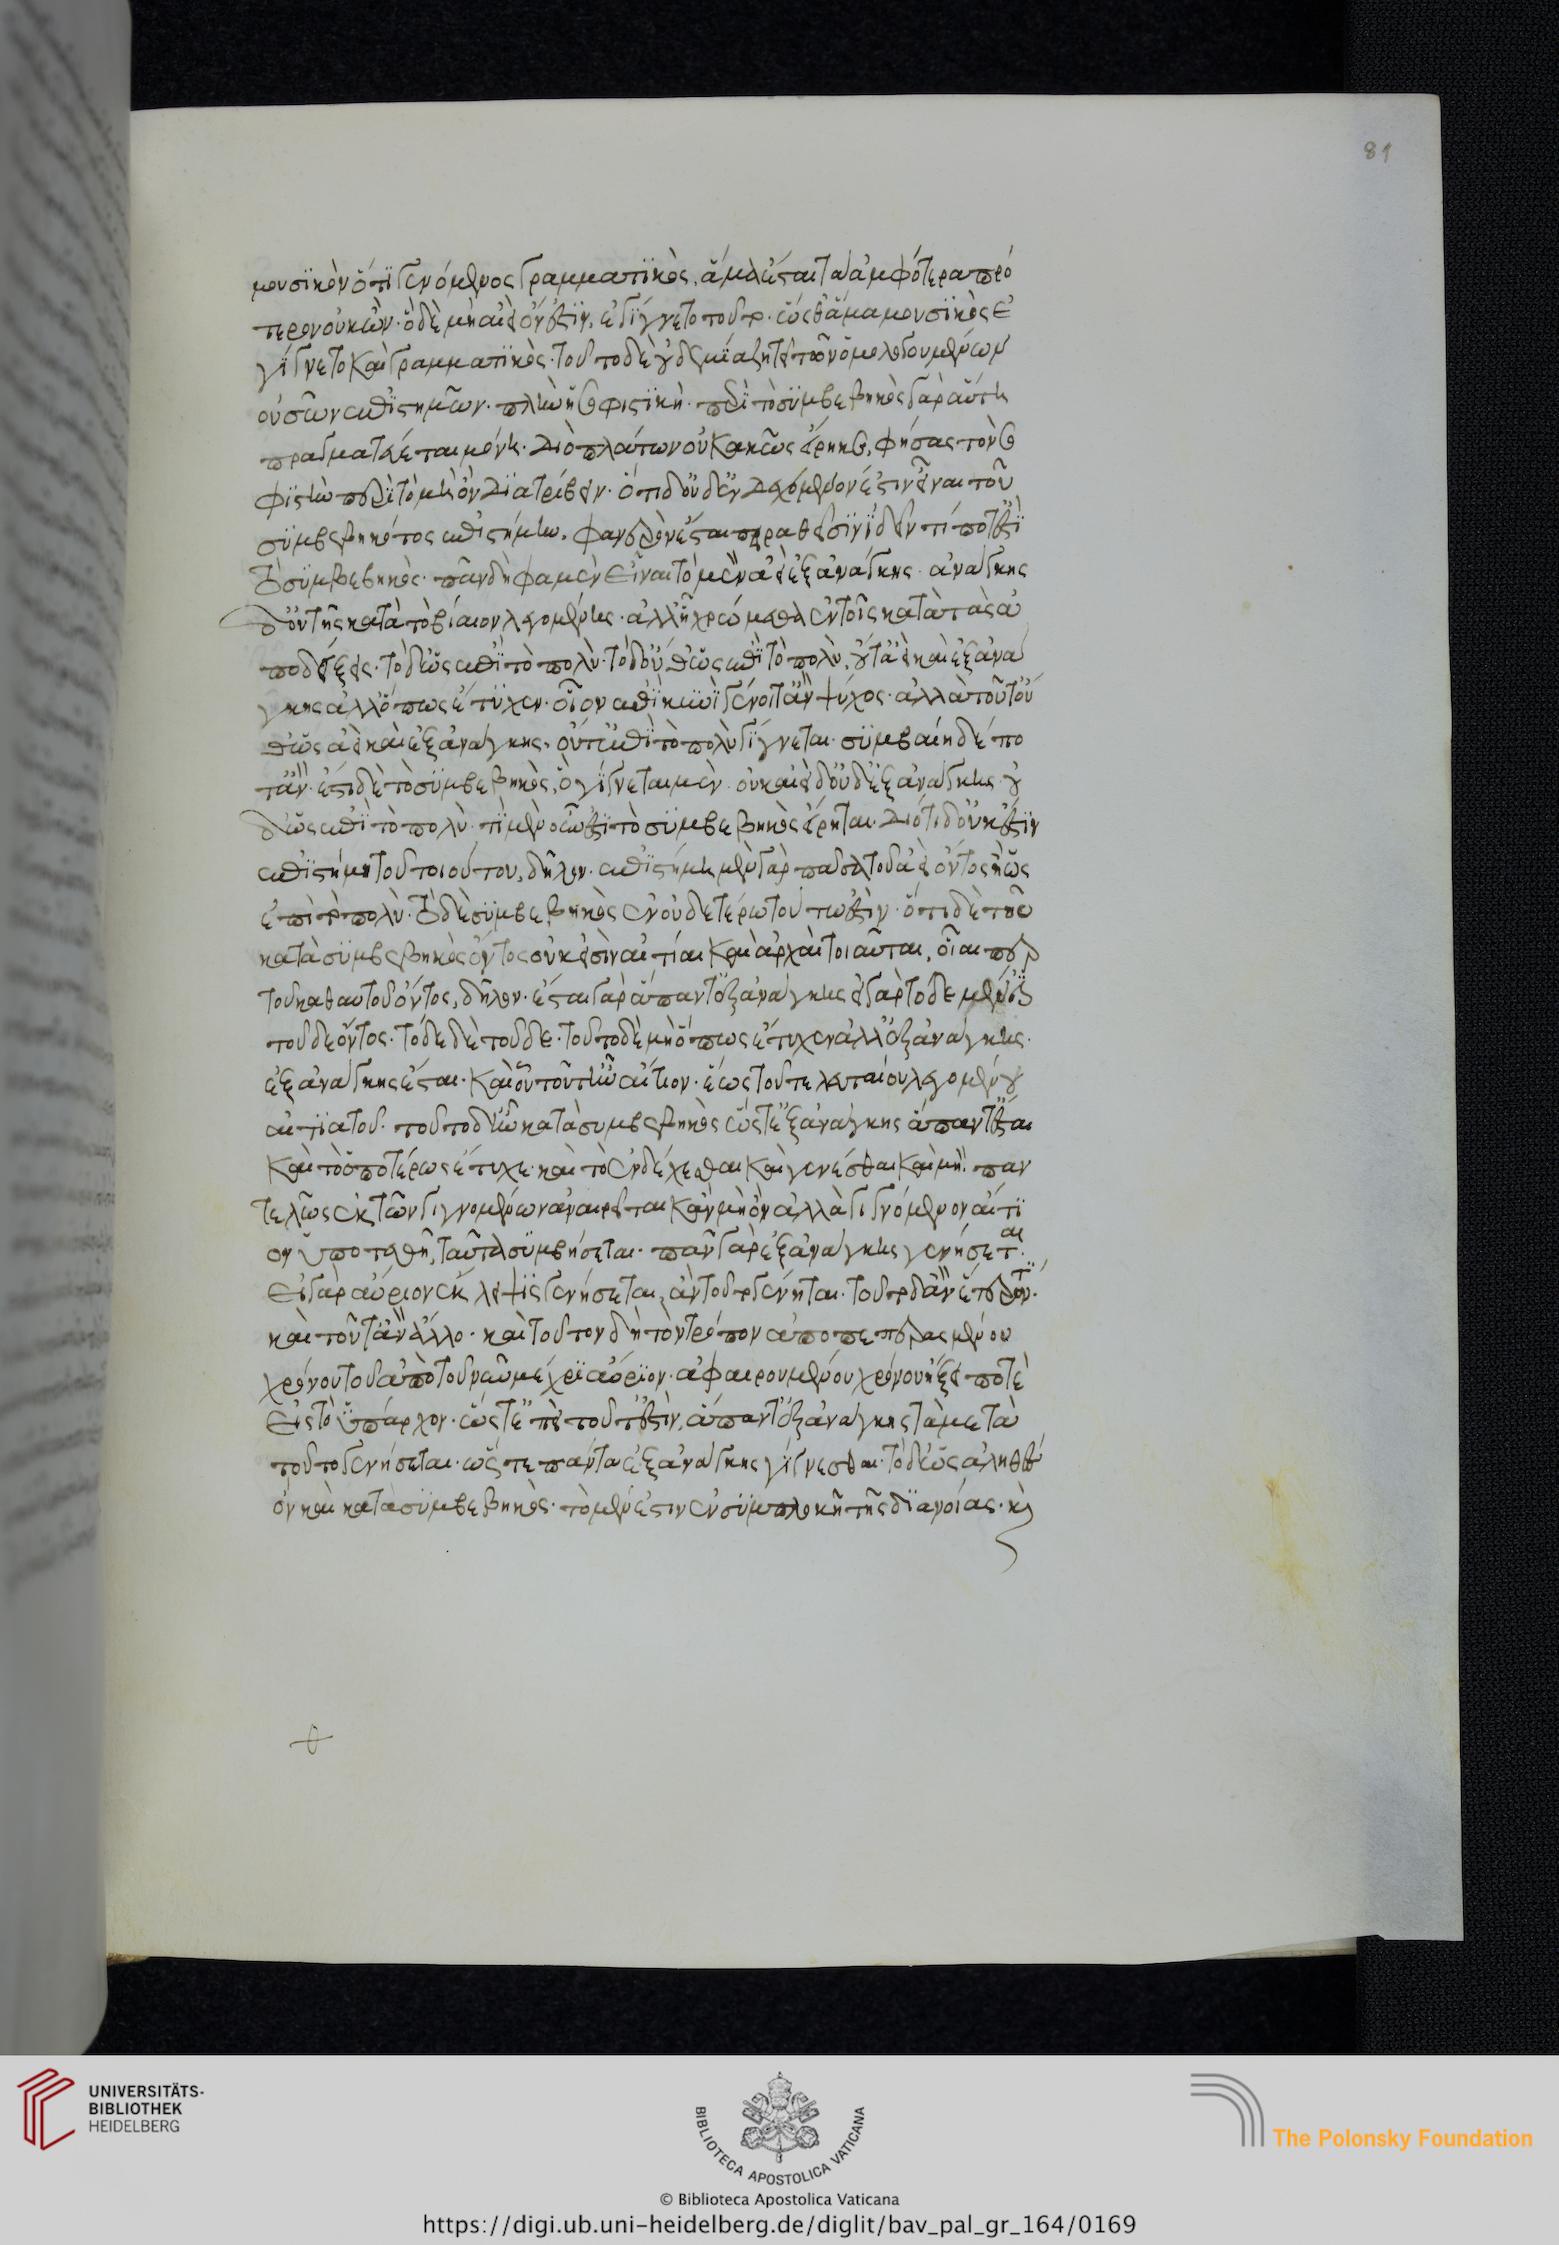 μουσικὸν ὅτι γενόμενος γραμματικὸς, ἅμα ἔσται τὰ ἀμφότερα πρό
τερον οὐκ ὢν· ὃ δὲ μὴ αἰεὶ ὄν ἐστιν, ἐγίγνετο τοῦτο· ὥσθ' ἅμα μουσικὸς ἐ
γίγνετο καὶ γραμματικός· τοῦτο δὲ οὐδεμία ζητεῖ τῶν ὁμολογουμένων
οὐσῶν ἐπιστημῶν· πλὴν ἡ σοφιστικὴ· περὶ τὸ συμβεβηκὸς γὰρ αὕτη
πραγματεύεται μόνη· διὸ πλάτων οὐ κακῶς εἴρηκε, φήσας τὸν σο
φιστὴν περὶ τὸ μὴ ὂν διατρίβειν· ὅτι δ' οὐδ' ἐνδεχόμενόν ἐστιν εἶναι τοῦ
συμβεβηκότος ἐπιστήμην, φανερὸν ἔσται πειραθεῖσιν ἰδεῖν τί ποτ' ἐστὶ
τὸ συμβεβηκὸς· πᾶν δὴ φαμὲν εἶναι τὸ μὲν ἀεὶ ἐξ ἀνάγκης· ἀνάγκης
δ' οὐ τῆς κατὰ τὸ βίαιον λεγομένης· ἀλλ' ᾗ χρώμεθα ἐν τοῖς κατὰ τὰς ἀ
ποδείξεις· τὸ δ' ὡς ἐπὶ τὸ πολὺ· τὸ δ' οὔθ' ὡς ἐπὶ τὸ πολὺ, οὔτ' ἀεὶ καὶ ἐξ ἀνά
γκης ἀλλ' ὅπως ἔτυχεν· οἷον ἐπὶ κυνὶ γένοιτ' ἂν ψύχος· ἀλλὰ τοῦτ' οὔ
θ' ὡς ἀεὶ καὶ ἐξ ἀνάγκης, οὔτ' ἐπὶ τὸ πολὺ γίγνεται· συμβαίη δέ πο
τ' ἄν· ἔστι δὲ τὸ συμβεβηκὸς, ὃ γίγνεται μὲν· οὐκ αἰεὶ δ' οὐδ' ἐξ ἀνάγκης· οὐ
δ' ὡς ἐπὶ τὸ πολὺ· τί μὲν οὖν ἐστὶ τὸ συμβεβηκὸς εἴρηται· διότι δ' οὐκ ἔστιν
ἐπιστήμη τοῦ τοιούτου, δῆλον· ἐπιστήμη μὲν γὰρ πᾶσα τοῦ ἀεὶ ὄντος ἢ ὡς
ἐπὶ τὸ πολὺ· τὸ δὲ συμβεβηκὸς ἐν οὐδετέρῳ τούτων ἐστὶν· ὅτι δὲ τοῦ
κατὰ συμβεβηκὸς ὄντος οὐκ εἰσὶν αἰτίαι καὶ ἀρχαὶ τοιαῦται, οἷαι περ
τοῦ καθ' αὑτοῦ ὄντος, δῆλον· ἔσται γὰρ ἅπαντ' ἐξ ἀνάγκης εἰ γὰρ τόδε μὲν ἐστὶ
τοῦδε ὄντος· τόδε δὲ τοῦδε· τοῦτο δὲ μὴ ὅπως ἔτυχεν ἀλλ' ἐξ ἀνάγκης·
ἐξ ἀνάγκης ἔσται· καὶ οὗ τοῦτ' ἦν αἴτιον· ἕως τοῦ τελευταίου λεγομένου
αἰτιατοῦ· τοῦτο δ' ἦν κατὰ συμβεβηκὸς ὥστ' ἐξ ἀνάγκης ἅπαντ' ἔσται
καὶ τὸ ὁποτέρως ἔτυχε· καὶ τὸ ἐνδέχεσθαι καὶ γενέσθαι καὶ μὴ παν
τελῶς ἐκ τῶν γιγνομένων ἀναιρεῖται κἂν μὴ ὂν ἀλλὰ γιγνόμενον αἴτι
ον ὑποτεθῇ, ταῦτα συμβήσεται· πᾶν γὰρ ἐξ ἀνάγκης γενήσεται·
εἰ γὰρ αὔριον ἔκλειψις γενήσεται, ἂν τοῦτο γένηται· τοῦτο δ' ἂν ἕτερόν τι·
καὶ τοῦτ' ἂν ἄλλο· καὶ τοῦτον δὴ τὸν τρόπον ἀπὸ πεπερασμένου
χρόνου τοῦ ἀπὸ τοῦ νῦν μέχρι αὔριον· ἀφαιρουμένου χρόνου ἥξει ποτὲ
εἰς τὸ ὑπάρχον· ὥστ' ἐπεὶ τοῦτ' ἐστὶν, ἅπαντ' ἐξ ἀνάγκης τὰ μετὰ
τοῦτο γενήσεται· ὥστε πάντα ἐξ ἀνάγκης γίγνεσθαι· τὸ δ' ὡς ἀληθὲς
ὂν καὶ κατὰ συμβεβηκὸς· τὸ μέν ἐστιν ἐν συμπλοκῇ τῆς διανοίας· καὶ
81
UNIVERSITÄTS-
BIBLIOTHEK
HEIDELBERG
BIBLIOTECA APOSTOLICA VATICANA
The Polonsky Foundation
© Biblioteca Apostolica Vaticana
https://digi.ub.uni-heidelberg.de/diglit/bav_pal_gr_164/0169